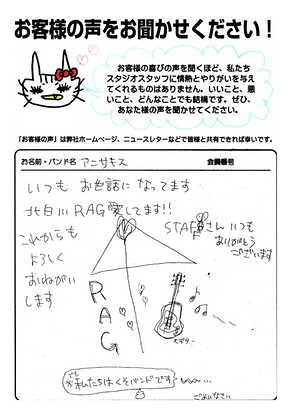 お客様の声をお聞かせください！
お客様の喜びの声を聞くほど、私たち
スタジオスタッフに情熱とやりがいを与え
てくれるものはありません。いいこと、悪
いこと、どんなことでも結構です。ぜひ、
あなた様の声を聞かせてください。
「お客様の声」は弊社ホームページ、ニュースレターなどで皆様と共有できれば幸いです。
お名前・バンド名 アニサキス 会員番号
いつも お世話に なってます
北白川 RAG愛してます!!
これからも
よろしく
おねがい
します
STAFFさん いつも
ありがとう
ございます
RAG
でも
私たちはくそバンドです
ごめんなさい